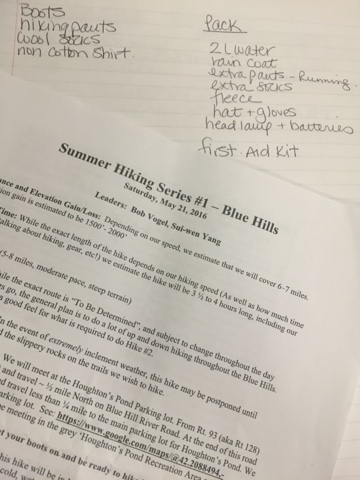 Boots
hiking pants
wool socks
non cotton shirt.
Pack
2L water
rain coat
extra pants - Running
extra socks
fleece
hat + gloves
head lamp + batteries
first Aid Kit
Summer Hiking Series #1 – Blue Hills
Saturday, May 21, 2016
Leaders: Bob Vogel, Sui-wen Yang
ance and Elevation Gain/Loss: Depending on our speed, we estimate that we will cover 6-7 miles.
ion gain is estimated to be 1500'- 2000'
Time: While the exact length of the hike depends on our hiking speed (As well as how much time
alking about hiking, gear, etc!) we estimate the hike will be 3 ½ to 4 hours long, including our
5-8 miles, moderate pace, steep terrain)
ile the exact route is "To Be Determined", and subject to change throughout the day
s go, the general plan is to do a lot of up and down hiking throughout the Blue Hills.
a good feel for what is required to do Hike #2.
In the event of extremely inclement weather, this hike may be postponed until
d the slippery rocks on the trails we wish to hike.
We will meet at the Houghton's Pond Parking lot. From Rt. 93 (aka Rt 128)
and travel ~ ½ mile North on Blue Hill River Road. At the end of this road
d travel less than ¼ mile to the main parking lot for Houghton's Pond. We
arking lot. See: https://www.google.com/maps/@42.2088494,-
e meeting in the grey 'Houghton's Pond Recreation Area
t your boots on and be ready to hike
his hike will be in
cold, wet